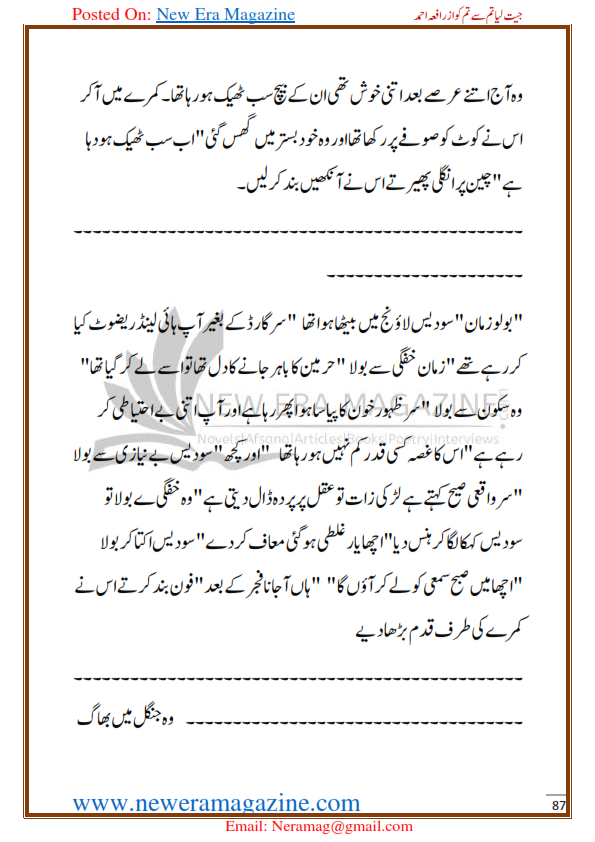 Posted On: New Era Magazine
جیت لیا تم سے تم کو از رافعہ احمد
وہ آج اتنے عرصے بعد اتنی خوش تھی ان کے بیچ سب ٹھیک ہو رہا تھا۔ کمرے میں آ کر
اس نے کوٹ کو صوفے پر رکھا تھا اور وہ خود بستر میں گھس گئی "اب سب ٹھیک ہو دہا
ہے" چین پر انگلی پھیرتے اس نے آنکھیں بند کر لیں۔
۔۔۔۔۔۔۔۔۔۔۔۔۔۔۔۔۔۔۔۔۔۔۔۔۔۔۔۔۔۔۔۔۔۔۔۔۔۔۔۔۔۔۔۔۔۔۔۔
۔۔۔۔۔۔۔۔۔۔۔۔۔۔۔۔۔۔۔۔۔
"بولو زمان" سودیس لاؤنج میں بیٹھا ہوا تھا "سر گارڈ کے بغیر آپ ہائی لینڈ ریضوٹ کیا
کر رہے تھے" زمان خفگی سے بولا "حرمین کا باہر جانے کا دل تھا تو اسے لے کر گیا تھا"
وہ سکون سے بولا "سر ظہور خون کا پیاسا ہوا پھر رہا ہے اور آپ اتنی بے احتیاطی کر
رہے ہے" اس کا غصہ کسی قدر کم نہیں ہو رہا تھا "اور کچھ" سودیس بے نیازی سے بولا
"سر واقعی صیح کہتے ہے لڑکی زات تو عقل پر پردہ ڈال دیتی ہے" وہ خفگی ے بولا تو
سودیس کہکا لگا کر ہنس دیا "اچھا یار غلطی ہو گئی معاف کر دے" سودیس اکتا کر بولا
"اچھا میں صبح سمعی کو لے کر آؤں گا" "ہاں آ جانا فجر کے بعد" فون بند کرتے اس نے
کمرے کی طرف قدم بڑھا دیے
۔۔۔۔۔۔۔۔۔۔۔۔۔۔۔۔۔۔۔۔۔۔۔۔۔۔۔۔۔۔۔۔۔۔۔۔۔۔۔۔۔۔۔۔۔۔۔۔
۔۔۔۔۔۔۔۔۔۔۔۔۔۔۔۔۔۔۔۔۔۔۔۔۔۔۔۔۔۔۔۔۔۔۔۔ وہ جنگل میں بھاگ
NEW ERA MAGAZINE
Novels|Afsana|Articles|Books|Poetry|Interviews
87
www.neweramagazine.com
Email: Neramag@gmail.com